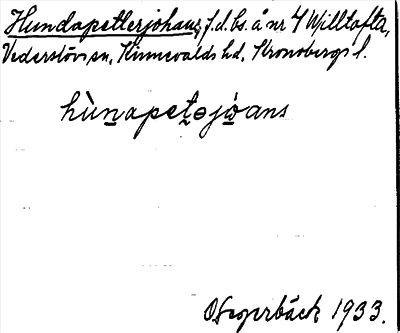 Hundapetterjohans, f.d. bs. å nr 4 Willtofta,
Vederslövs sn, Kinnevalds hd, Kronobergs l.
hùnapetəjòans
O. Segerbäck 1933.